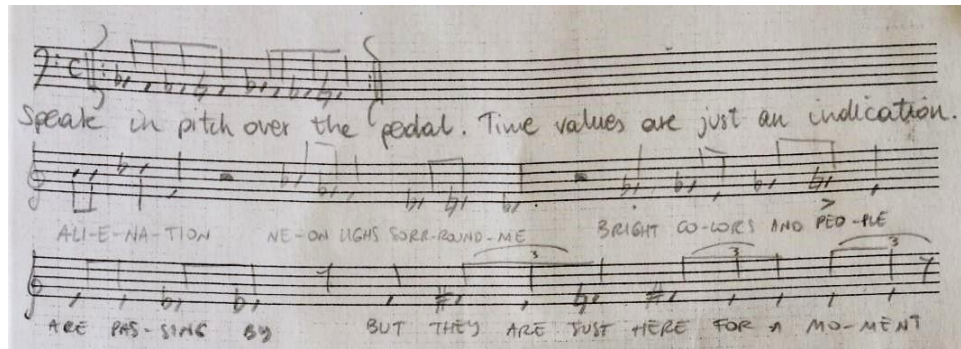 Speak in pitch over the pedal. Time values are just an indication.
ALI-E-NA-TION NE-ON LIGHS SORR-ROUND-ME BRIGHT CO-LORS AND PEO-PLE
3 3 3
ARE PAS-SING BY BUT THEY ARE JUST HERE FOR A MO-MENT